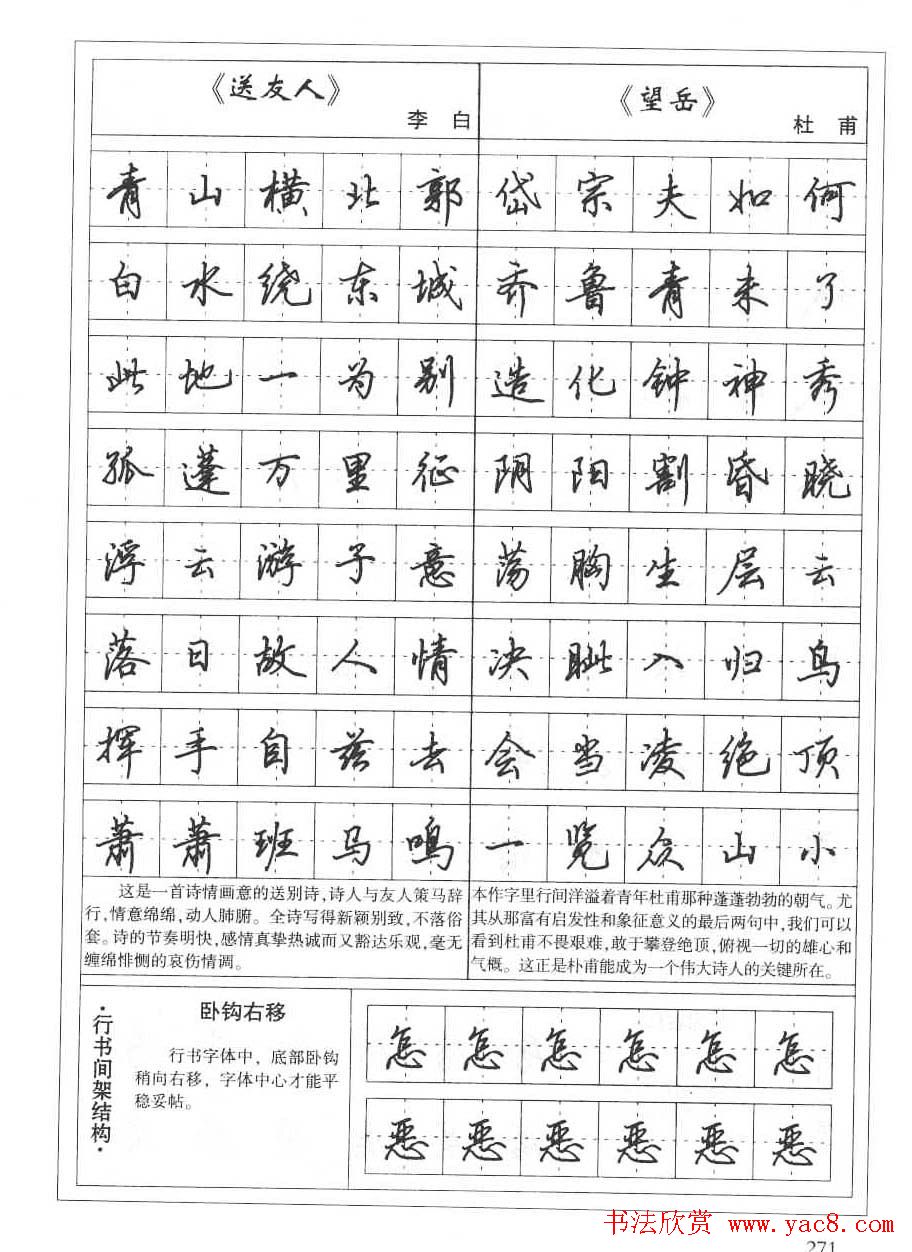 《送友人》
李 白
青山横北郭
白水绕东城
此地一为别
孤蓬万里征
浮云游子意
落日故人情
挥手自兹去
萧萧班马鸣
这是一首诗情画意的送别诗，诗人与友人策马辞
行，情意绵绵，动人肺腑。全诗写得新颖别致，不落俗
套。诗的节奏明快，感情真挚热诚而又豁达乐观，毫无
缠绵悱恻的哀伤情调。
《望岳》
杜 甫
岱宗夫如何
齐鲁青未了
造化钟神秀
阴阳割昏晓
荡胸生层云
决眦入归鸟
会当凌绝顶
一览众山小
本作字里行间洋溢着青年杜甫那种蓬蓬勃勃的朝气。尤
其从那富有启发性和象征意义的最后两句中，我们可以
看到杜甫不畏艰难，敢于攀登绝顶，俯视一切的雄心和
气概。这正是朴甫能成为一个伟大诗人的关键所在。
·行书间架结构·
卧钩右移
行书字体中，底部卧钩
稍向右移，字体中心才能平
稳妥帖。
怎怎怎怎怎怎
恶恶恶恶恶恶
书法欣赏 www.yac8.com
271